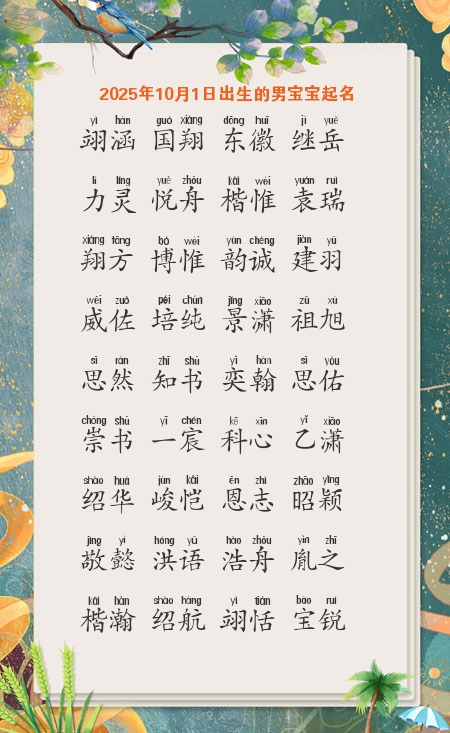 2025年10月1日出生的男宝宝起名
yì hàn guó xiáng dōng huī jì yuè
翊涵 国翔 东徽 继岳
lì líng yuè zhōu kǎi wéi yuán ruì
力灵 悦舟 楷惟 袁瑞
xiáng fāng bó wéi yùn chéng jiàn yǔ
翔方 博惟 韵诚 建羽
wēi zuǒ péi chún jǐng xiāo zǔ xù
威佐 培纯 景潇 祖旭
sī rán zhī shū yì hàn sī yòu
思然 知书 奕翰 思佑
chóng shū yī chén kē xīn yǐ xiāo
崇书 一宸 科心 乙潇
shào huá jùn kǎi ēn zhì zhāo yǐng
绍华 峻恺 恩志 昭颖
jìng yì hóng yǔ hào zhōu yìn zhī
敬懿 洪语 浩舟 胤之
kǎi hàn shào háng yì tián bǎo ruì
楷瀚 绍航 翊恬 宝锐